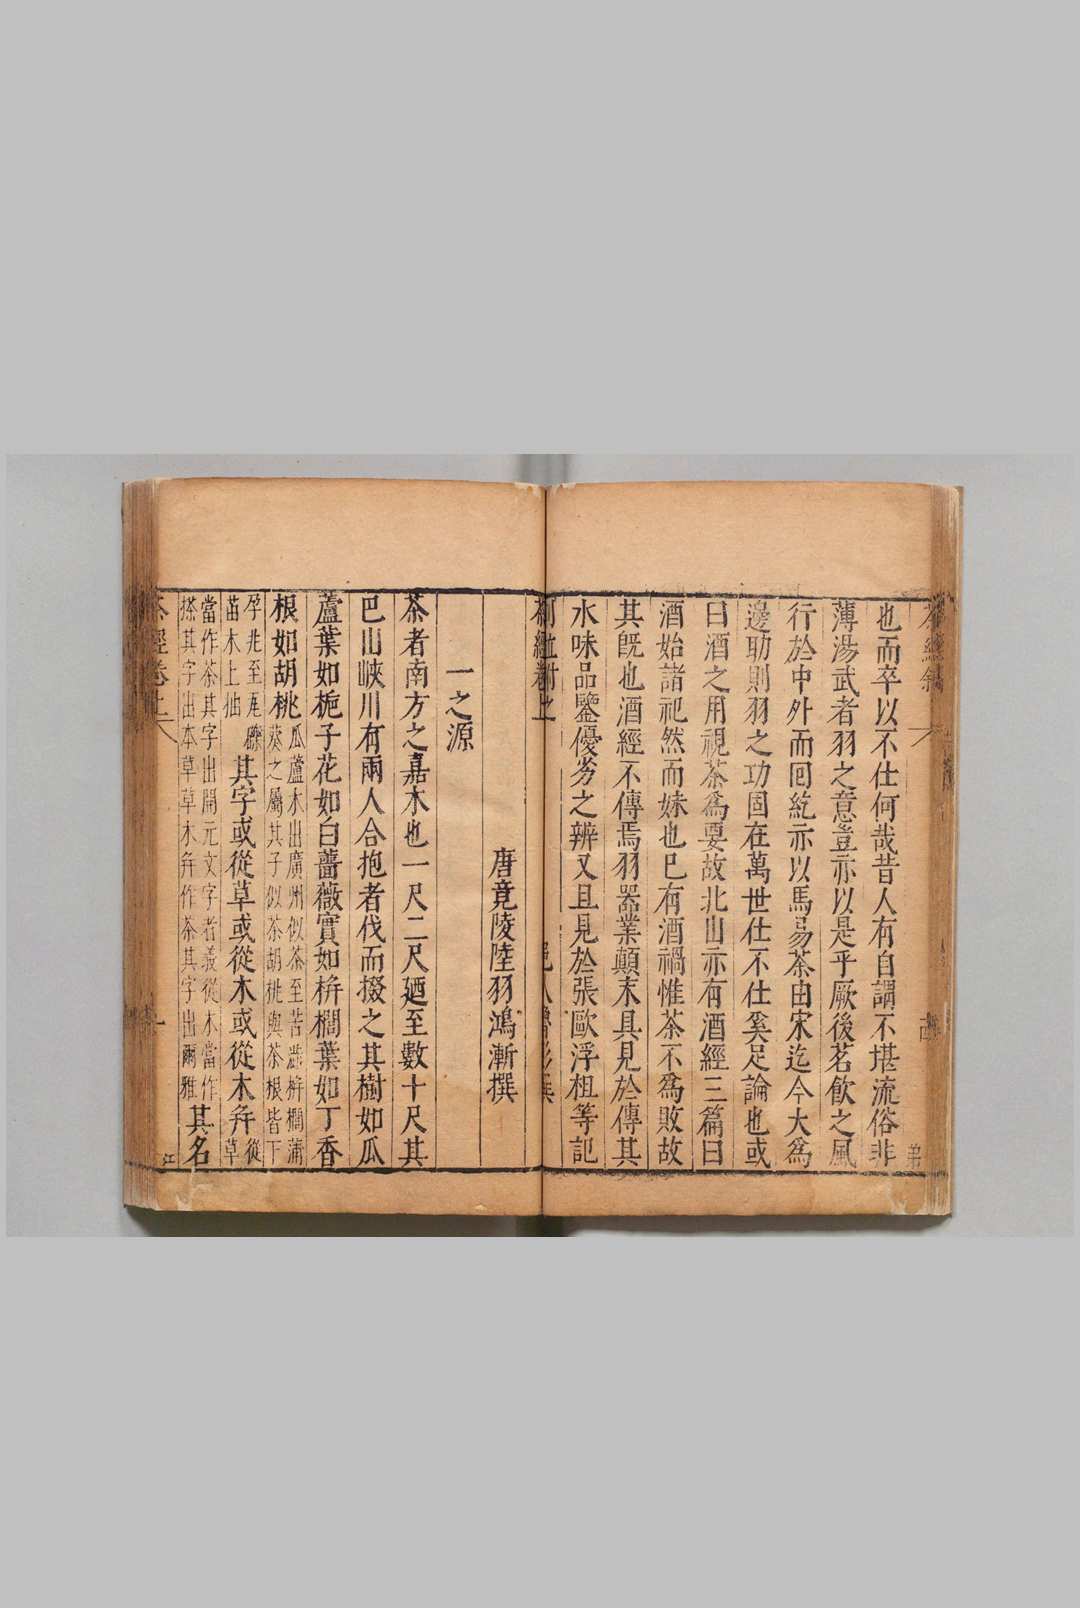 也而卒以不仕何哉昔人有自謂不堪流俗非
薄湯武者羽之意豈亦以是乎厥後茗飲之風
行於中外而回紇亦以馬易茶由宋迄今大為
邊助則羽之功固在萬世仕不仕奚足論也或
曰酒之用視茶為要故北山亦有酒經三篇曰
酒始諸祀然而妹也已有酒禍惟茶不為敗故
其旣也酒經不傳焉羽器業顛末具見於傳其
水味品鑒優劣之辨又且見於張歐浮槎等記
茶經卷上
唐竟陵陸羽鴻漸撰
一之源
茶者南方之嘉木也一尺二尺廼至數十尺其
巴山峽川有兩人合抱者伐而掇之其樹如瓜
蘆葉如梔子花如白薔薇實如栟櫚葉如丁香
根如胡桃瓜蘆木出廣州似茶至苦澀栟櫚蒲
葵之屬其子似茶胡桃與茶根皆下
孕兆至瓦礫
苗木上抽其字或從草或從木或從木并從
草
當作茶其字出開元文字者義從木當作
搽其字出本草草木并作茶其字出爾雅其名
茶經卷上